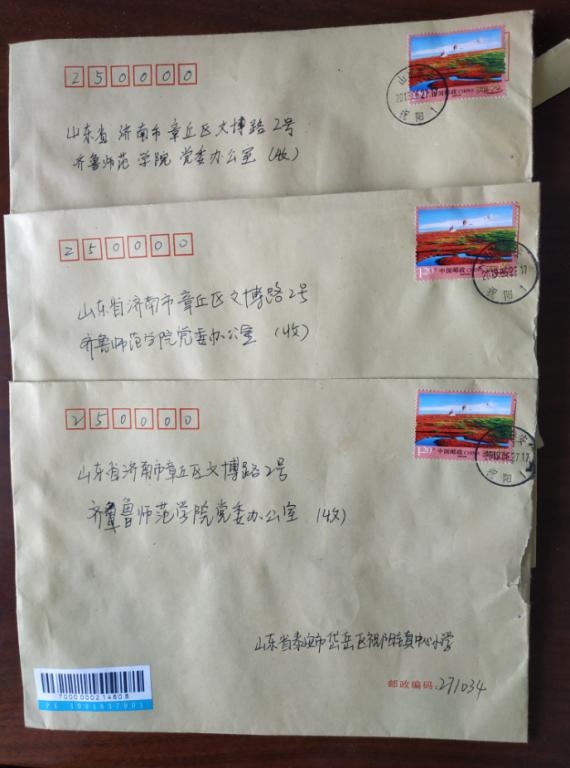 250000
山东省济南市章丘区文博路2号
齐鲁师范学院党委办公室(收)
中国邮政 CHINA
汶阳1
250000
山东省济南市章丘区文博路2号
齐鲁师范学院党委办公室(收)
1.20
中国邮政 CHINA
2019.06.27.17
250000
山东省济南市章丘区文博路2号
齐鲁师范学院党委办公室(收)
1.20
中国邮政 CHINA
2019.06.27.17
山东省泰安市岱岳区祝阳镇中心小学
邮政编码:271034